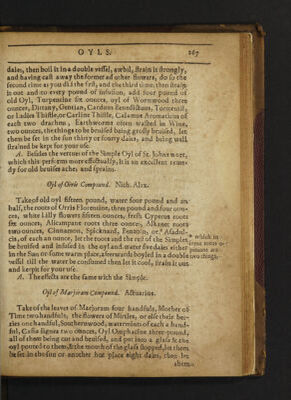 OYLS. 267
daies, then boil it in a double vessel, awhil, strain it strongly,
and having cast away the former ad other flowers, do so the
second time as you did the first, and the third time, then strain
it out and to every pound of infusion, add four pound of
old Oyl, Turpentine six ounces, oyl of Wormwood three
ounces, Dittany, Gentian, Carduus Benedictus, Tormentil,
or Ladies Thistle, or Carline Thistle, Calamus Aromaticus of
each two drachms, Earthworms often washed in Wine,
two ounces, the things to be bruised being grosly bruised, let
them be set in the sun thirty or fourty daies, and being well
strained be kept for your use.
A. Besides the vertues of the Simple Oyl of St. Johns wort,
which this performs more effectually, It is an excellent remedy
for old bruises aches and sprains.
Oyl of Orris Compound. Nich. Alex.
Take of old oyl fifteen pound, water four pound and an
half, the roots of Orris Florentine, three pound and four ounces,
white Lilly flowers fifteen ounces, fresh Cyperus roots
six ounces, Alicampane roots three ounces, Alkanet roots
two ounces, Cinnamon, Spicknard, Benzoin, or * Asadulcis,
of each an ounce, let the roots and the rest of the Simples
be bruised and infused in the oyl and water five daies either
in the Sun or some warm place, afterwards boyled in a double
vessel till the water be consumed then let it cool, strain it out
and kept it for your use.
* which in
some notes
two things.
A. The effects are the same with the Simple.
Oyl of Marjoram Compound. Actuarius.
Take of the leaves of Marjoram four handfuls, Mother of
Time two handfuls, the flowers of Mirtles, or else their berries
one handful, Southernwood, watermints of each a handful,
Cassia lignea two ounces, Oyl Omphacine three pound,
all of them being cut and bruised, and put into a glass & the
oyl poured to them, & the mouth of the glass stopped, let them
be set in the sun or another hot place eight daies, then let
them